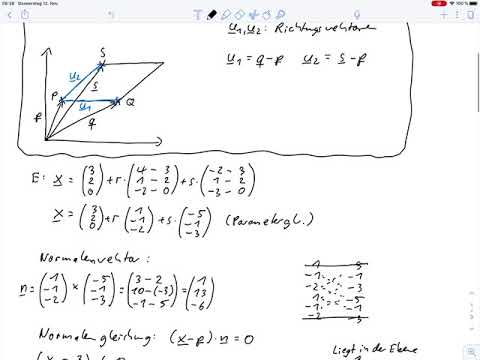 08:38 Donnerstag 12. Nov. 100 %
u₁, u₂: Richtungsvektoren
u₁ = q-p u₂ = s-p
S
u₂
s
P
u₁
Q
p
q
E: x = (3 2 0) + r·(4-3 1-2 -2-0) + s·(-2-3 1-2 -3-0)
x = (3 2 0) + r(1 -1 -2) + s·(-5 -1 -3) (Parametergl.)
Normalenvektor:
n = (1 -1 -2) × (-5 -1 -3) = (3-2 10-(-3) -1-5) = (1 13 -6)
1 -5
-1 -1
-2 -3
1 -5
-1 -1
-2 -3
Normalengleichung: (x-p)·n = 0
Liegt in der Ebene